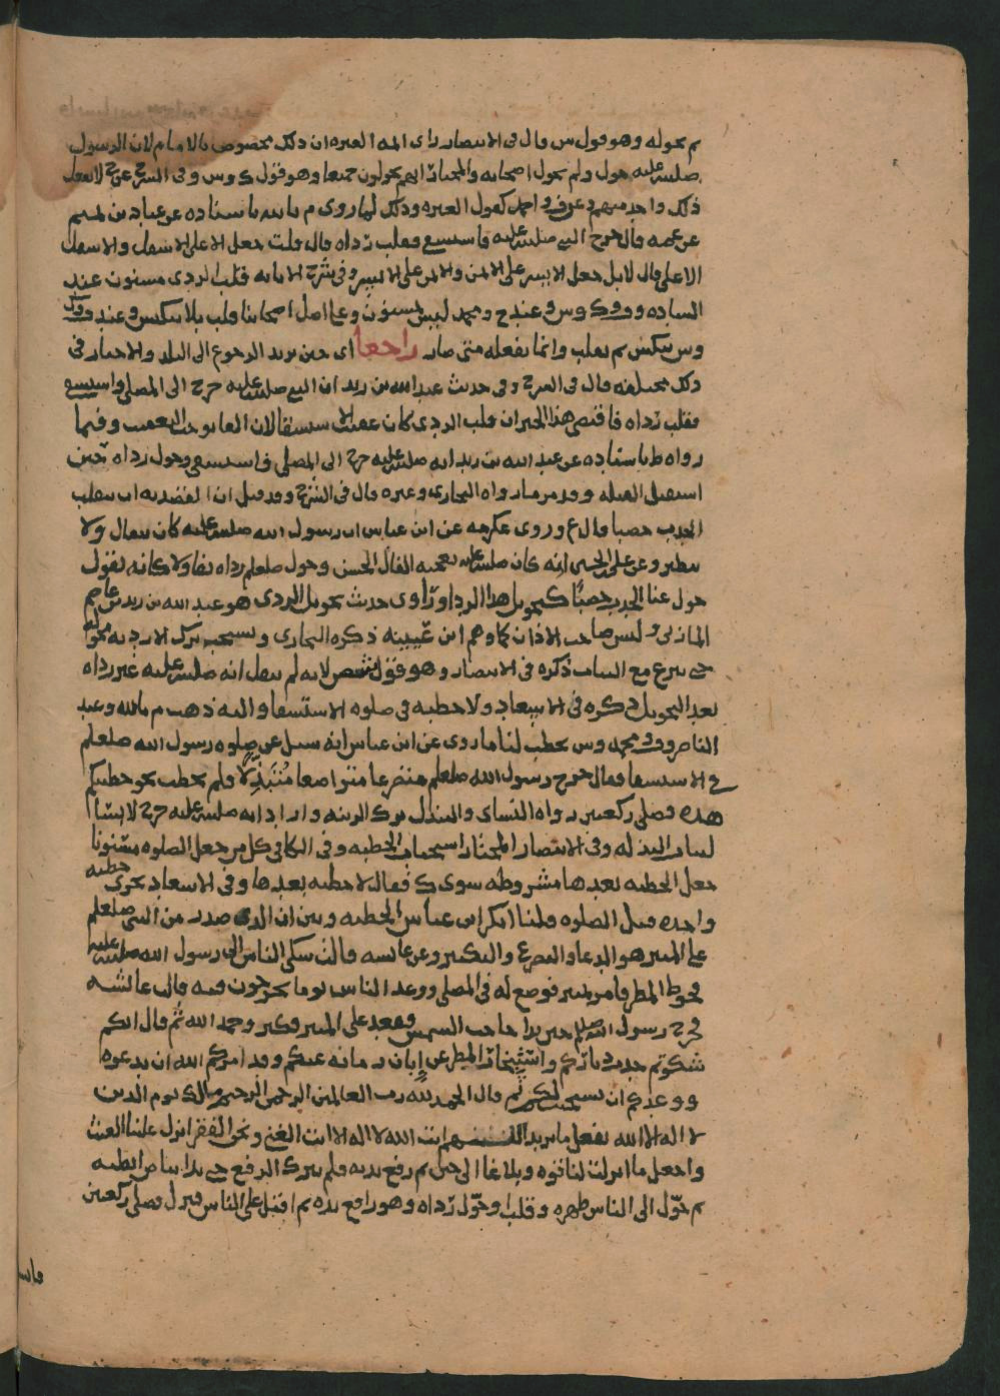 ثم يحوله وهو قول س قال في الانتصار راي ائمة العترة ان ذلك مخصوص بالامام لان الرسول
صلى الله عليه حول ولم يحول اصحابه والمختار انهم يحولون جميعا وهو قول ك وس وفي الشرح عن ح لا يفعل
ذلك واحد منهم وعن ف واحمد كقول العترة وذلك لما روى م بالله باسناده عن عباد بن تميم
عن عمه قال خرج النبي صلى الله عليه فاستسقى فقلب رداه قال قلت جعل الاعلى الاسفل والاسفل
الاعلى قال لا بل جعل الايسر على الايمن والايمن على الايسر وفي شرح الابانه قلب الردى مسنون عند
الساده و وك وس وعند ح ومحمد ليس بمسنون وعلى اصل اصحابنا قلب بلا تنكيس وعند
وس تنكس ثم تقلب وانما يفعله متى صار راجعا اي حين يريد الرجوع الى البلد والاخبار في
ذلك مختلفه قال في الشرح وفي حديث عبد الله بن زيد ان النبي صلى الله عليه خرج الى المصلى واستسقى
فقلب رداه فاقتضى هذا الخبر ان قلب الردى كان عقيب الاستسقا لان الفا توجب التعقيب وفيما
رواه ط باسناده عن عبد الله بن زيد انه صلى الله عليه خرج الى المصلى فاستسقى وحول رداه حين
استقبل القبله وقد مر ما رواه البخاري وغيره قال في الشرح وقد قيل ان القصد به ان ينقلب
الجدب خصبا قال ع وروى عكرمه عن ابن عباس ان رسول الله صلى الله عليه كان يتفال ولا
يتطير وعن علي الحسن انه كان صلى الله عليه يعجبه الفال الحسن وحول صلعلم رداه تفاولا كانه يقول
حول عنا الجدب خصبا كتحويل هذا الردا وراوى حديث تحويل الردى هو عبد الله بن زيد بن عاصم
المازني وليس صاحب الاذان كما وهم ابن عيينه ذكره البخاري ويستحب ترك الارديه محوله
حتى تنزع مع الثياب ذكره في الانتصار وهو قول ش لانه لم ينقل انه صلى الله عليه غير رداه
بعد التحويل ذكره في ولا خطبه في صلوة الاستسقا واليه ذهب م بالله وعند
الناصر وف ومحمد وس يخطب لنا ما روى عن ابن عباس انه سئل عن صلوه رسول الله صلعلم
في الاستسقا فقال خرج رسول الله صلعلم متضرعا متواضعا متبذلا فلم يخطب نحو خطبتكم
هذه وصلى ركعتين رواه النساي والتبذل ترك الزينه واراد انه صلى الله عليه خرج لابسا
لثياب البذله وفي الانتصار المختار استحباب الخطبه وفي الكافي كل من جعل الصلوه مسنونا
جعل الخطبه بعدها مشروطه سوى ك فقال لا خطبه بعدها وفي الاسعاد تجزي خطبه
واحده قبل الصلوه قلنا انكر ابن عباس الخطبه وبين ان الذي صدر من النبي صلعلم
على المنبر هو الدعا والتضرع والتكبير وعن عائشه قالت شكى الناس الى رسول الله صلى الله عليه
قحوط المطر فامر بمنبر فوضع له في المصلى ووعد الناس يوما يخرجون فيه قالت عائشه
فخرج رسول الله صلعلم حين بدا حاجب الشمس فقعد على المنبر وكبر وحمد الله ثم قال انكم
شكوتم جدب دياركم واستيخار المطر عن إبان زمانه عنكم وقد امركم الله ان تدعوه
ووعدكم ان يستجيب لكم ثم قال الحمد لله رب العالمين الرحمن الرحيم مالك يوم الدين
لا اله الا الله يفعل ما يريد اللهم انت الله لا اله الا انت الغني ونحن الفقرا انزل علينا الغيث
واجعل ما انزلت لنا قوه وبلاغا الى حين ثم رفع يديه فلم يترك الرفع حتى بدا بياض ابطيه
ثم حوّل الى الناس ظهره وقلب او حوّل رداه وهو رافع يده ثم اقبل على الناس فنزل فصلى ركعتين